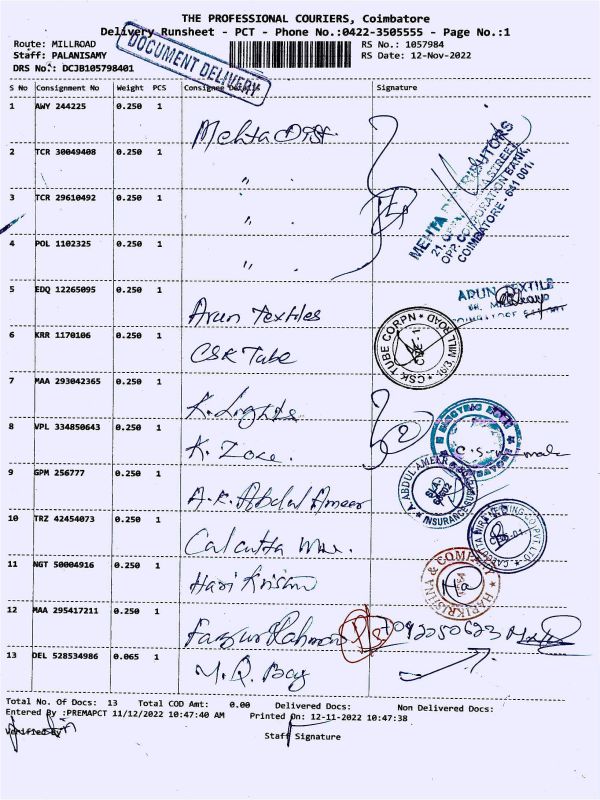 THE PROFESSIONAL COURIERS, Coimbatore
Delivery Runsheet - PCT - Phone No.:0422-3505555 - Page No.:1
Route: MILLROAD RS No.: 1057984
Staff: PALANISAMY RS Date: 12-Nov-2022
DRS No.: DCJB105798401
DOCUMENT DELIVERY
S No Consignment No Weight PCS Consignee Details Signature
1 AWY 244225 0.250 1 Mehta Dist
2 TCR 30049408 0.250 1 " .
3 TCR 29610492 0.250 1 " .
4 POL 1102325 0.250 1 " .
MEHTA DISTRIBUTORS
OPP. CORPORATION BANK,
COIMBATORE - 641 001.
5 EDQ 12265095 0.250 1 Arun Textiles
ARUN TEXTILE
6 KRR 1170106 0.250 1 CSK Tube
CSK TUBE CORPN
MILL ROAD
7 MAA 293042365 0.250 1 K. Lights
8 VPL 334850643 0.250 1 K. Zone.
9 GPM 256777 0.250 1 A.K. Abdul Ameer
A. ABDUL AMEER
INSURANCE
10 TRZ 42454073 0.250 1 Calcutta
11 NGT 50004916 0.250 1 Hari Krisna
HARIKRISHNA &
12 MAA 295417211 0.250 1 Fazzur Rahman
13 DEL 528534986 0.065 1 M.Q. Bag
Total No. Of Docs: 13 Total COD Amt: 0.00 Delivered Docs: Non Delivered Docs:
Entered By :PREMAPCT 11/12/2022 10:47:40 AM Printed On: 12-11-2022 10:47:38
Verified By Staff Signature